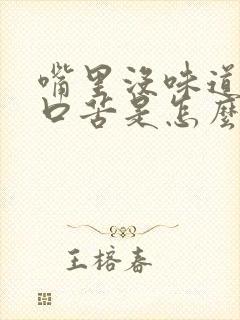 嘴里没味道
口苦是怎麼
王榕春